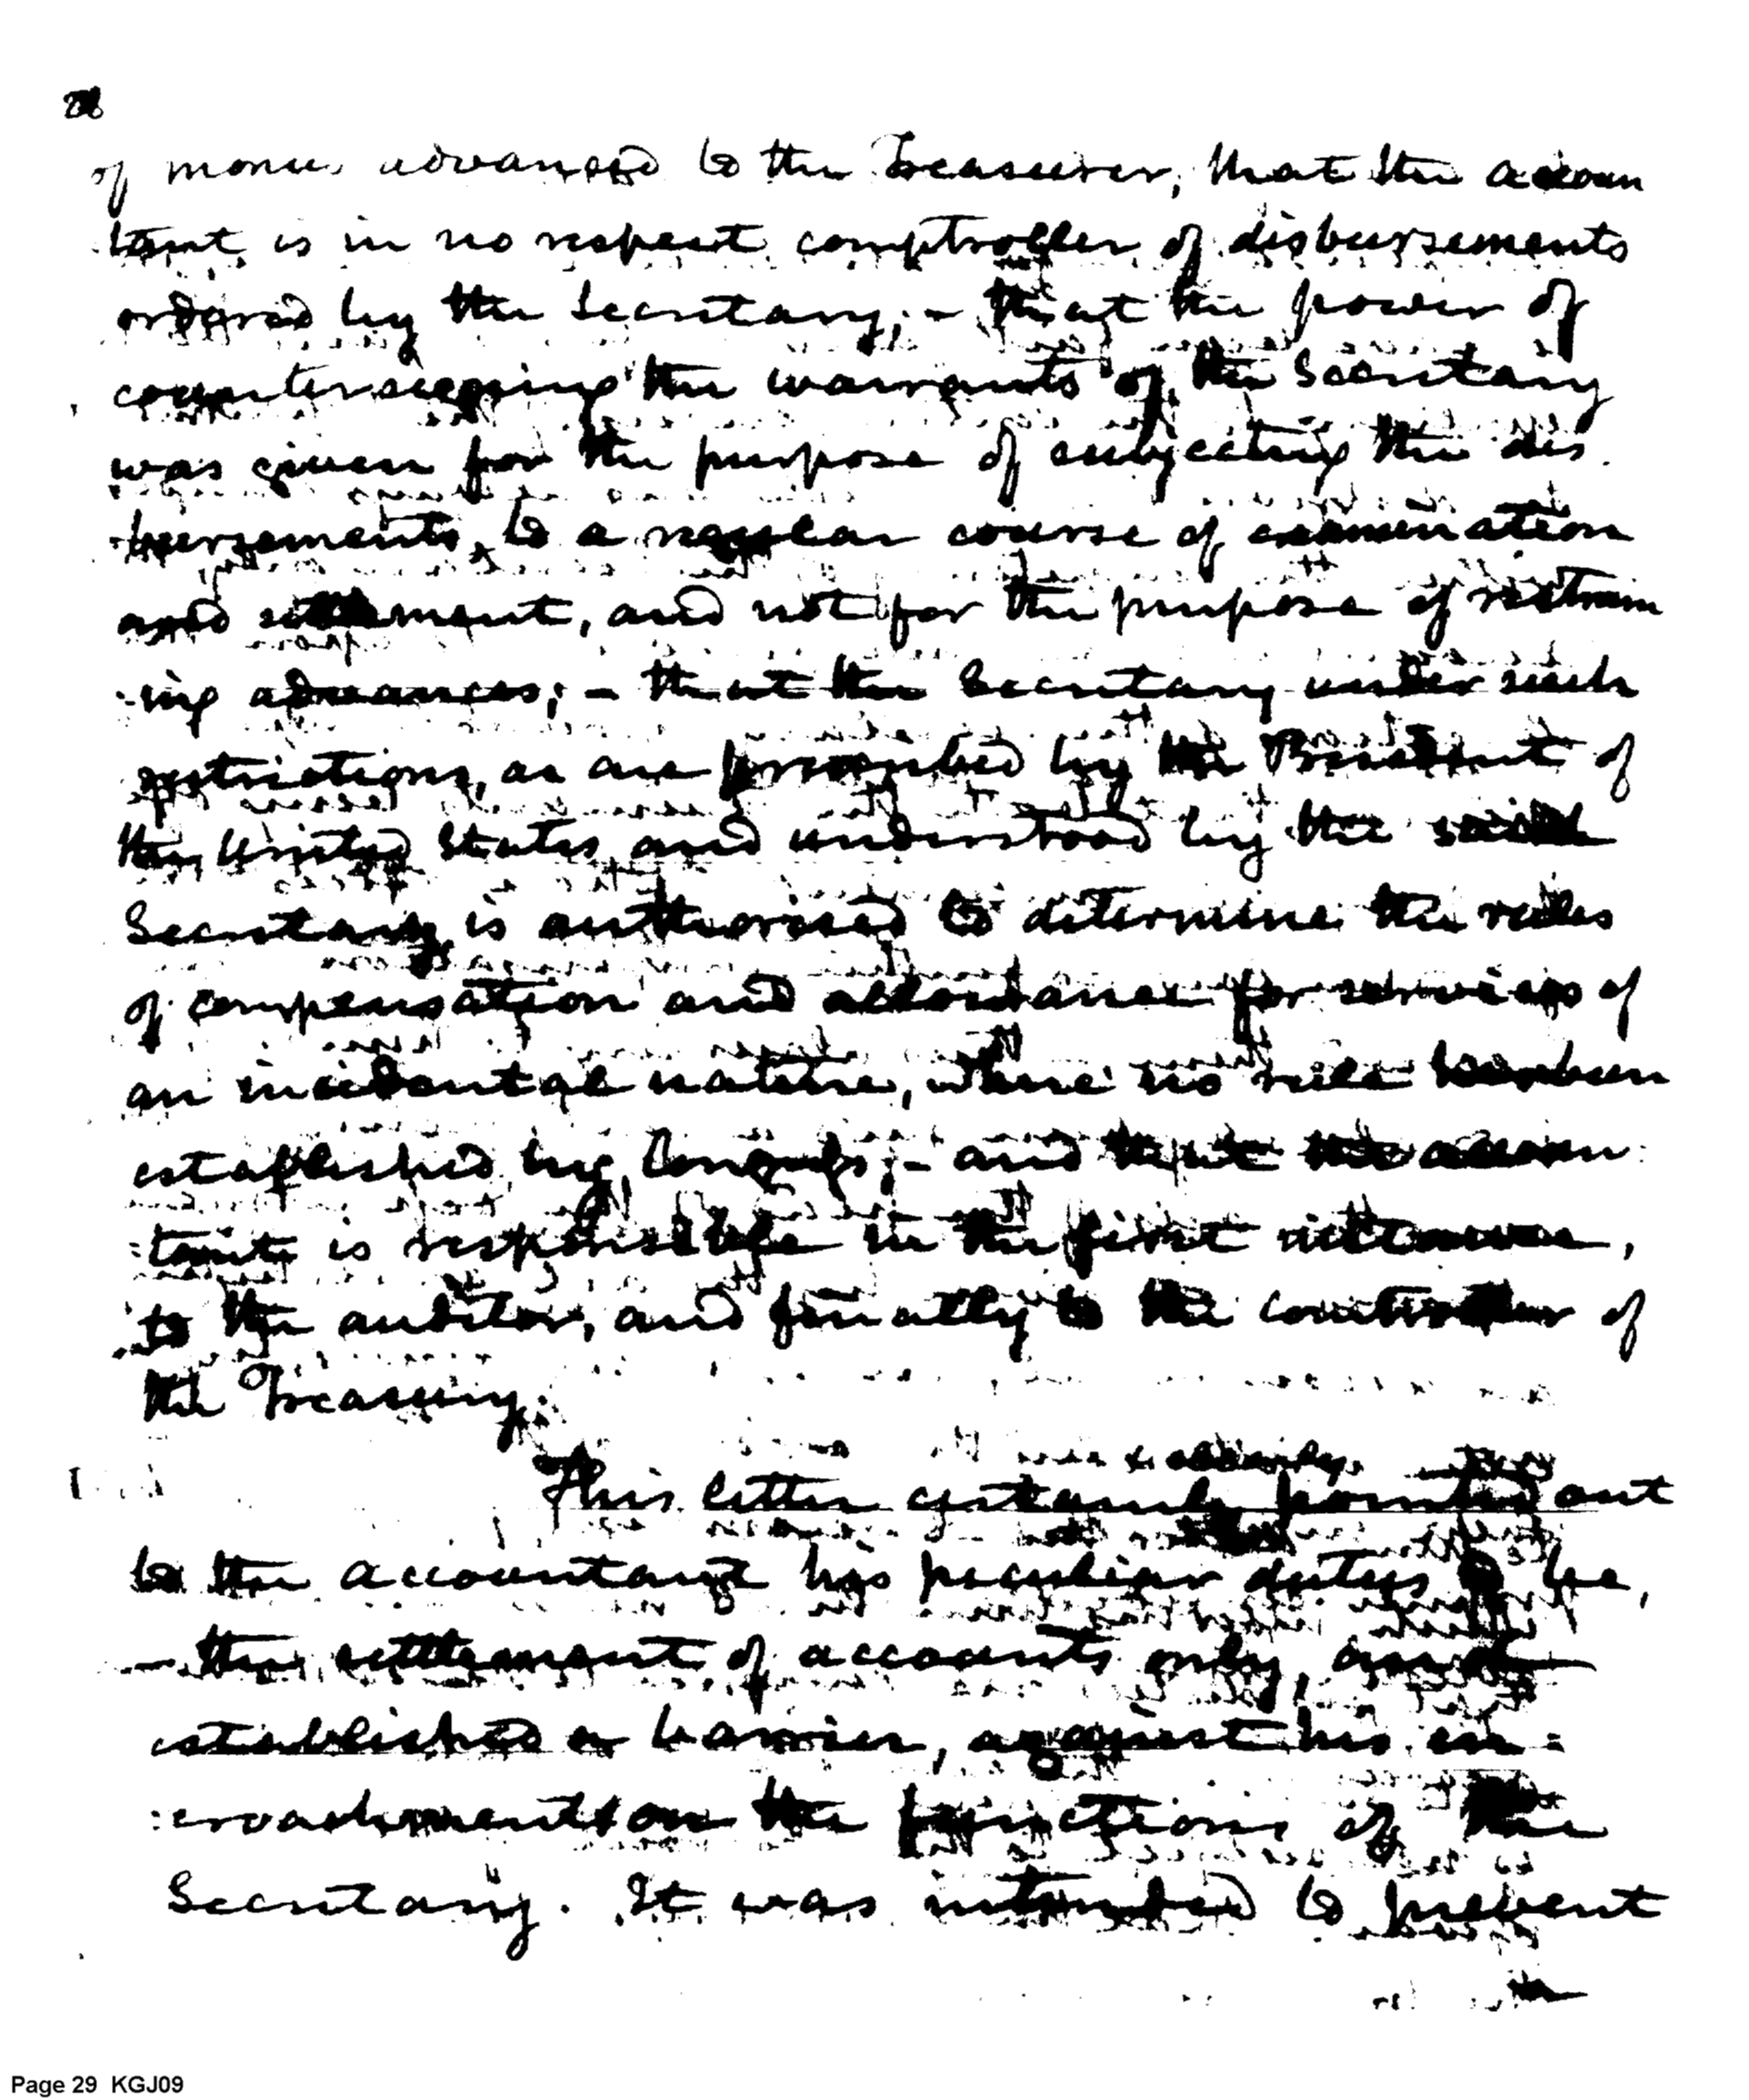 28
of monies advanced to the Treasurer, that the accoun
tant is in no respect comptroller of disbursements
ordered by the Secretary; - that the power of
countersigning the warrants of the Secretary
was given for the purpose of subjecting the dis
bursements, to a regular course of examination
and settlement, and not for the purpose of restrain
-ing advances; - that the Secretary under such
restrictions, as are prescribed by the President of
the United States and understood by the said
Secretary is authorised to determine the rules
of compensation and allowance for services of
an incidental nature, where no rule has been
established by Congress; - and that the accoun
:tant is responsible in the first instance,
to the auditor, and finally to the comptroller of
the Treasury.
This letter certainly pointed out
to the accountant his peculiar duties to be,
- the settlement of accounts only, and
established a barrier, against his en:
:croachments on the functions of the
Secretary. It was intended to prevent
the
Page 29 KGJ09